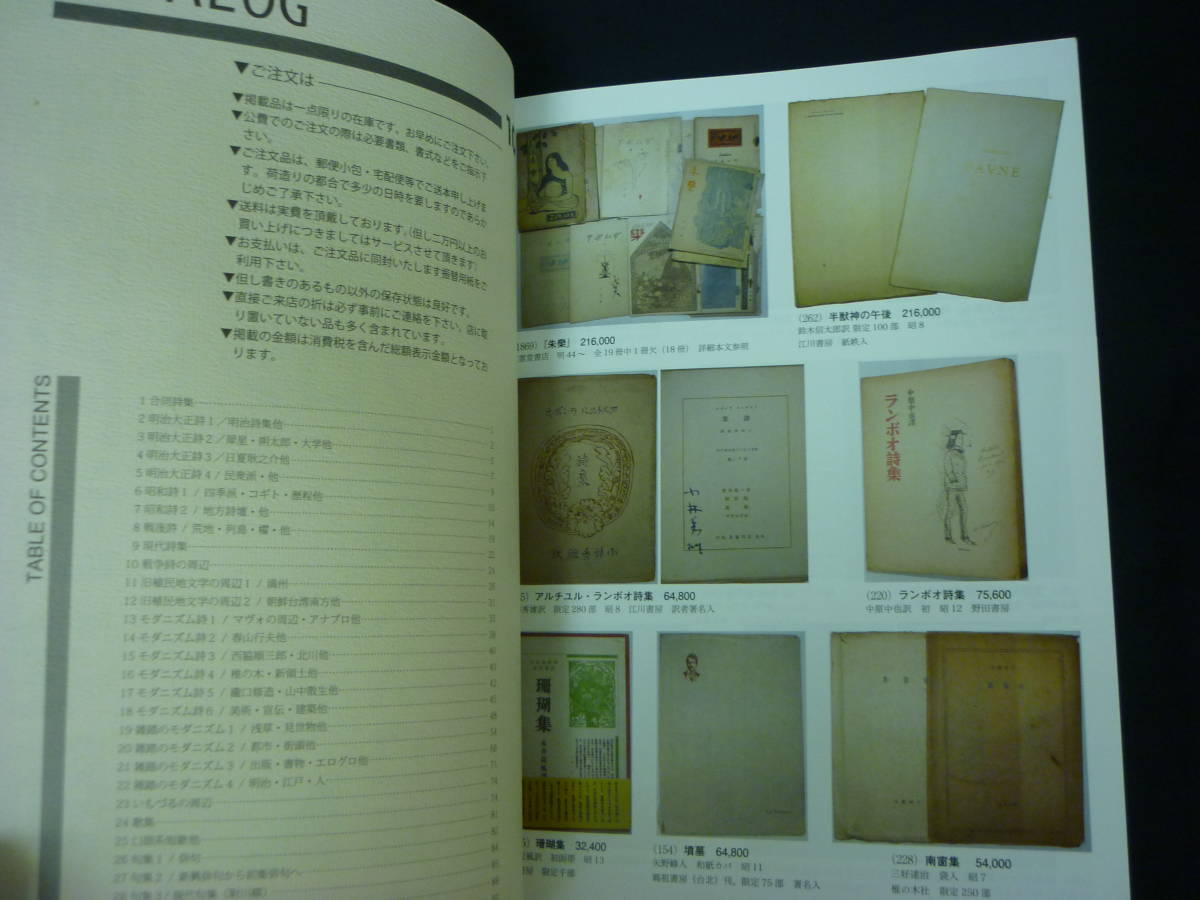 ALOG
▼ご注文は
▼掲載品は一点限りの在庫です。お早めにご注文下さい。
▼公費でのご注文の際は必要書類、書式などをご指示下
さい。
▼ご注文品は、郵便小包・宅配便等でご送本申し上げま
す。荷造りの都合で多少の日時を要しますのであらか
じめご了承下さい。
▼送料は実費を頂戴しております。(但し二万円以上のお
買い上げにつきましてはサービスさせて頂きます)
▼お支払いは、ご注文品に同封いたします振替用紙をご
利用下さい。
▼但し書きのあるもの以外の保存状態は良好です。
▼直接ご来店の折は必ず事前にご連絡を下さい。店に取
り置いていない品も多く含まれています。
▼掲載の金額は消費税を含んだ総額表示金額となってお
ります。
TABLE OF CONTENTS
1 合同詩集
2 明治大正詩1/明治詩集他
3 明治大正詩2/犀星・朔太郎・大学他
4 明治大正詩3/日夏耿之介他
5 明治大正詩4/民衆派・他
6 昭和詩1/四季派・コギト・歴程他
7 昭和詩2/地方詩壇・他
8 戦後詩/荒地・列島・櫂・他
9 現代詩集
10 戦争詩の周辺
11 旧植民地文学の周辺1/満州
12 旧植民地文学の周辺2/朝鮮台湾南方他
13 モダニズム詩1/マヴォの周辺・アナプロ他
14 モダニズム詩2/春山行夫他
15 モダニズム詩3/西脇順三郎・北川他
16 モダニズム詩4/椎の木・新領土他
17 モダニズム詩5/瀧口修造・山中散生他
18 モダニズム詩6/美術・宣伝・建築他
19 雑踏のモダニズム1/浅草・見世物他
20 雑踏のモダニズム2/都市・街頭他
21 雑踏のモダニズム3/出版・書物・エログロ他
22 雑踏のモダニズム4/明治・江戸・人
23 いもづるの周辺
24 歌集
25 口語系短歌他
26 句集1/俳句
27 句集2/新興俳句から前衛俳句へ
1869)『朱欒』 216,000
明44~ 全19冊中1冊欠(18冊) 詳細本文参照
FAVNE
(262) 半獣神の午後 216,000
鈴木信太郎訳 限定100部 昭8
江川書房 紙峡入
詩集
小林秀雄
5) アルチユル・ランボオ詩集 64,800
秀雄訳 限定280部 昭8 江川書房 訳者署名入
中原中也譯
ランボオ詩集
(220) ランボオ詩集 75,600
中原中也訳 初 昭12 野田書房
珊瑚集
5) 珊瑚集 32,400
風訳 初函帯 昭13
房 限定千部
(154) 墳墓 64,800
矢野峰人 和紙カバ 昭11
媽祖書房(台北)刊、限定75部 署名入
(228) 南窗集 54,000
三好達治 袋入 昭7
椎の木社 限定250部